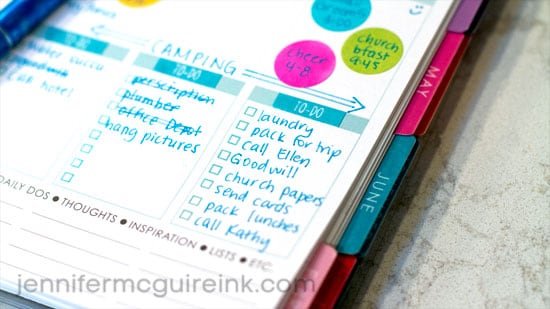 8-00
Cheer
4-8
church
bfast
9:45
CAMPING
Call hotel
TO-DO
prescription
plumber
office Depot
hang pictures
TO-DO
laundry
pack for trip
call Ellen
Goodwill
church papers
send cards
pack lunches
call Kathy
DAILY DOS • THOUGHTS • INSPIRATION • LISTS • ETC.
MAY
JUNE
jennifermcguireink.com